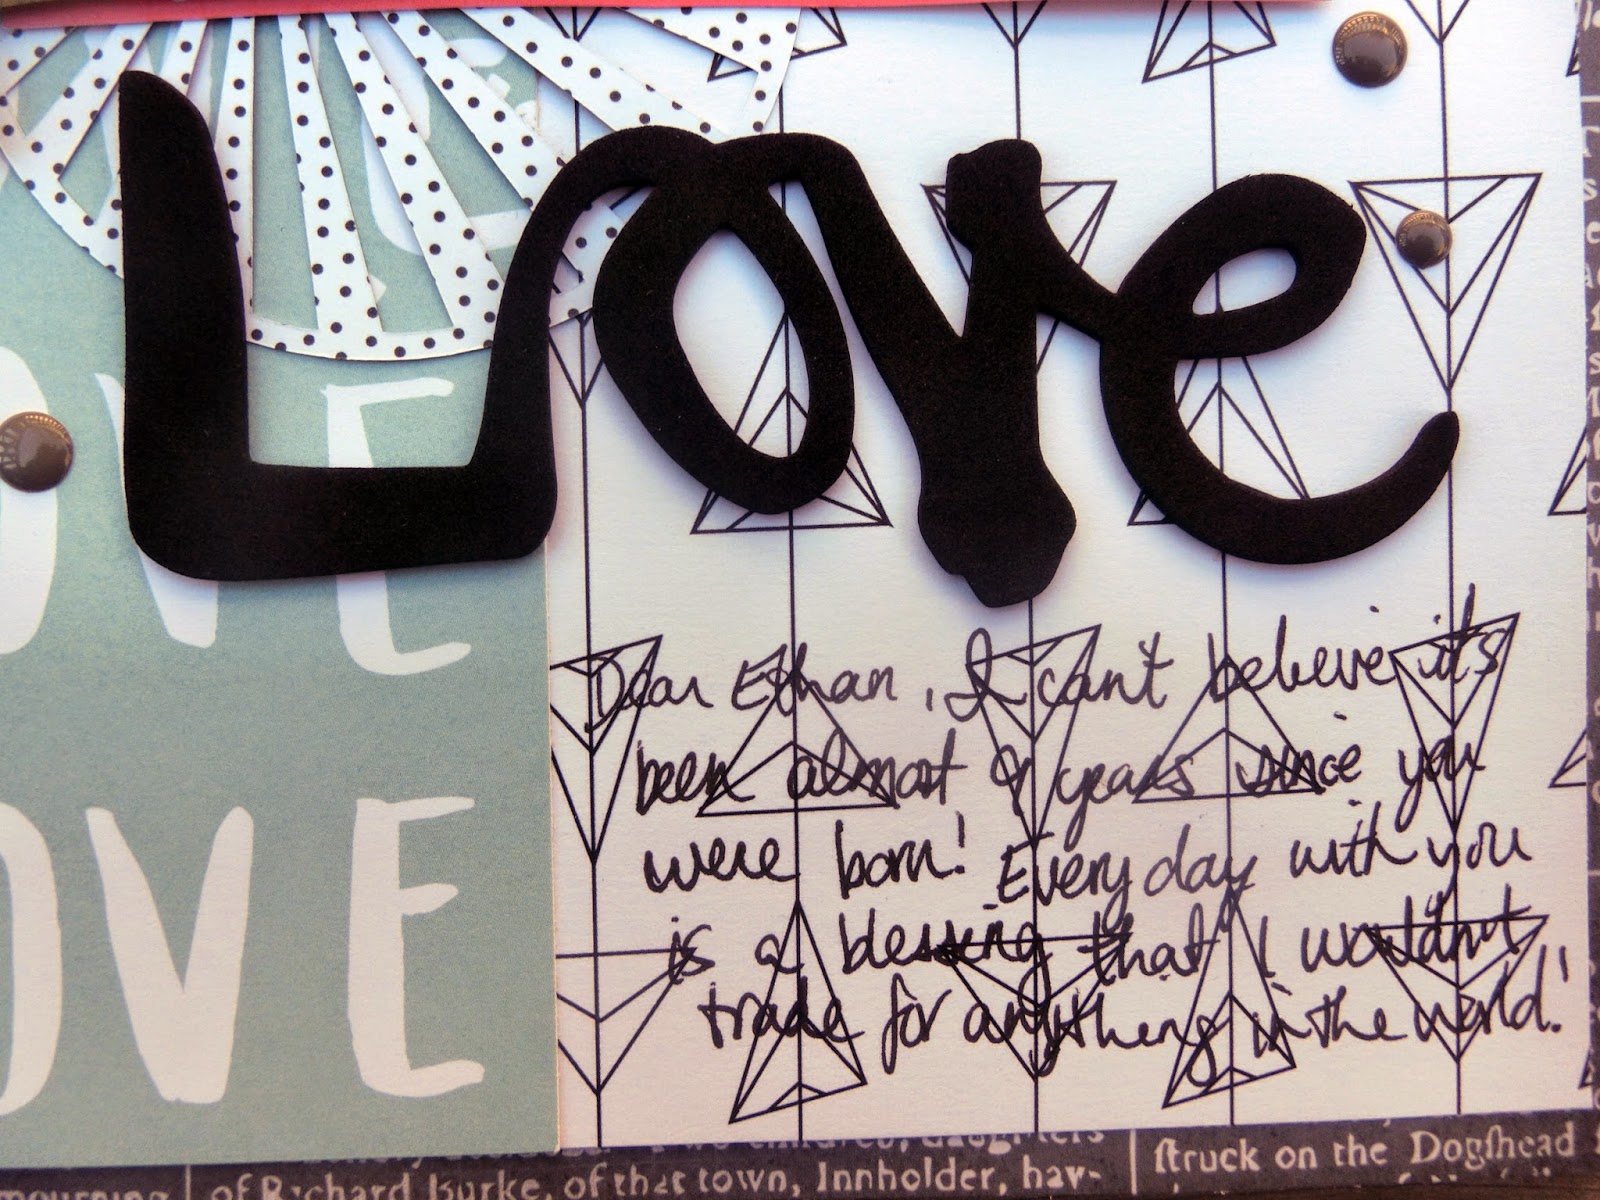 Love
OVE
OVE
Dear Ethan, I can't believe it's
been almost 9 years since you
were born! Every day with you
is a blessing that I wouldn't
trade for anything in the world!
mourning
of Richard Burke, of that town, Innholder, hav-
ſtruck on the Dogſhead